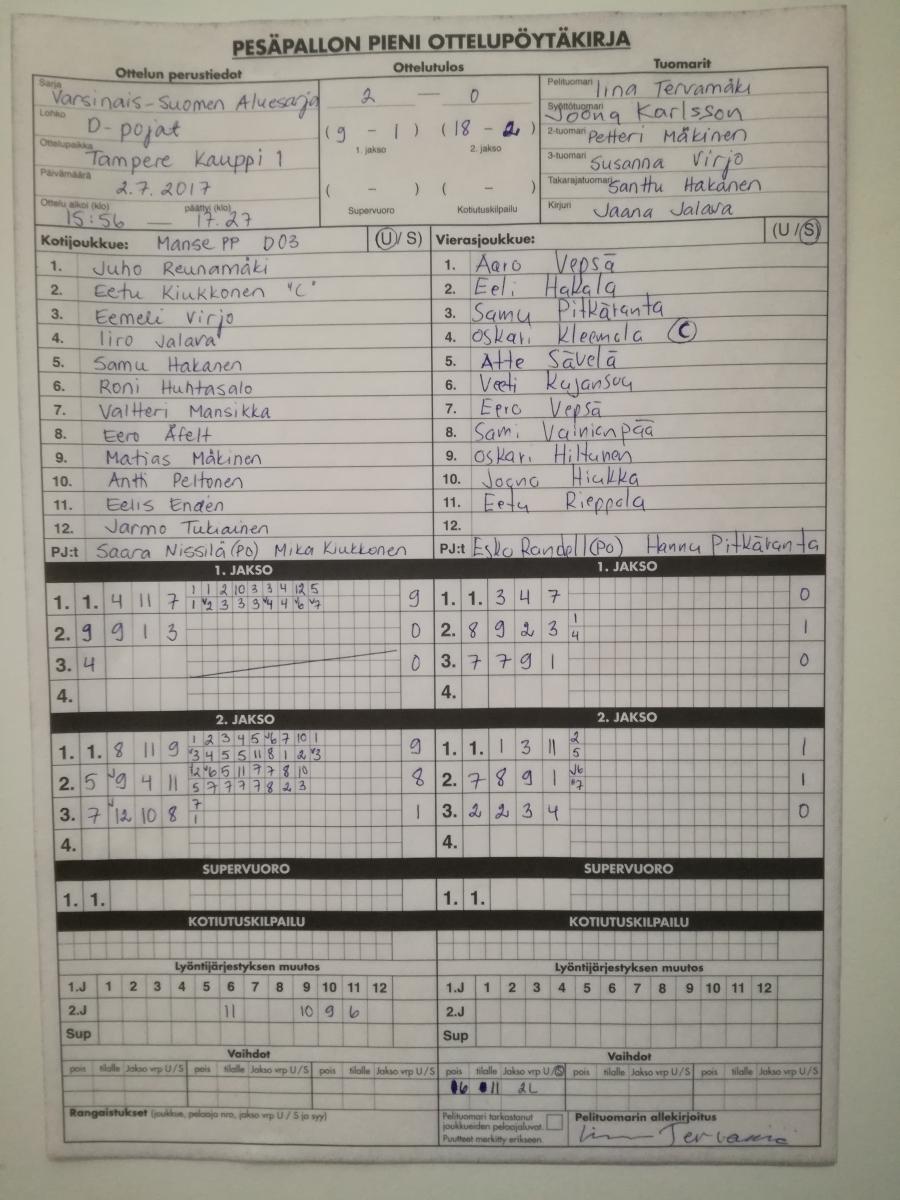 PESÄPALLON PIENI OTTELUPÖYTÄKIRJA
Ottelun perustiedot
Ottelutulos
Tuomarit
Sarja Varsinais-Suomen Aluesarja
Lohko D-pojat
Ottelupaikka Tampere Kauppi 1
Päivämäärä 2.7.2017
Ottelu alkoi (klo) päättyi (klo)
15:56 — 17.27
2 — 0
(9 - 1) (18 - 2)
1. jakso 2. jakso
( - ) ( - )
Supervuoro Kotiutuskilpailu
Pelituomari Iina Tervamäki
Syöttötuomari Joona Karlsson
2-tuomari Petteri Mäkinen
3-tuomari Susanna Virjo
Takarajatuomari Santtu Hakanen
Kirjuri Jaana Jalava
Kotijoukkue: Manse PP D03 (U/S)
1. Juho Reunamäki
2. Eetu Kiukkonen "C"
3. Eemeli Virjo
4. Iiro Jalava
5. Samu Hakanen
6. Roni Huhtasalo
7. Valtteri Mansikka
8. Eero Åfelt
9. Matias Mäkinen
10. Antti Peltonen
11. Eelis Enden
12. Jarmo Tukiainen
PJ:t Saara Nissilä (PO) Mika Kiukkonen
Vierasjoukkue: (U/S)
1. Aaro Vepsä
2. Eeli Hakala
3. Samu Pitkäranta
4. Oskari Kleemola C
5. Atte Sävelä
6. Veeti Kujansuu
7. Eero Vepsä
8. Sami Vainienpää
9. Oskari Hiltunen
10. Joona Hiukka
11. Eetu Rieppola
12.
PJ:t Esko Randell (PO) Hannu Pitkäranta
1. JAKSO
1. 1. 4 11 7 1 1 2 10 3 3 4 12 5 9
1 2 3 3 3 4 4 6 7
2. 9 9 1 3 0
3. 4 0
4.
1. JAKSO
1. 1. 3 4 7 0
2. 8 9 2 3 1 4 1
3. 7 7 9 1 0
4.
2. JAKSO
1. 1. 8 11 9 1 2 3 4 5 6 7 10 1 9
3 4 5 5 11 8 1 2 3
2. 5 9 4 11 12 6 5 11 7 7 8 10 8
5 7 7 7 7 8 2 3
3. 7 12 10 8 7 1 1
4.
2. JAKSO
1. 1. 1 3 11 2 5 1
2. 7 8 9 1 6 7 1
3. 2 2 3 4 0
4.
SUPERVUORO
1. 1.
SUPERVUORO
1. 1.
KOTIUTUSKILPAILU
KOTIUTUSKILPAILU
Lyöntijärjestyksen muutos
1.J 1 2 3 4 5 6 7 8 9 10 11 12
2.J 11 10 9 6
Sup
Lyöntijärjestyksen muutos
1.J 1 2 3 4 5 6 7 8 9 10 11 12
2.J
Sup
Vaihdot
pois tilalle Jakso vrp U/S pois tilalle Jakso vrp U/S pois tilalle Jakso vrp U/S
Vaihdot
pois tilalle Jakso vrp U/S pois tilalle Jakso vrp U/S pois tilalle Jakso vrp U/S
6 11 2L
Rangaistukset (joukkue, pelaaja nro, jakso vrp U / S ja syy)
Pelituomari tarkastanut
joukkueiden pelaajaluvat.
Puutteet merkitty erikseen.
Pelituomarin allekirjoitus